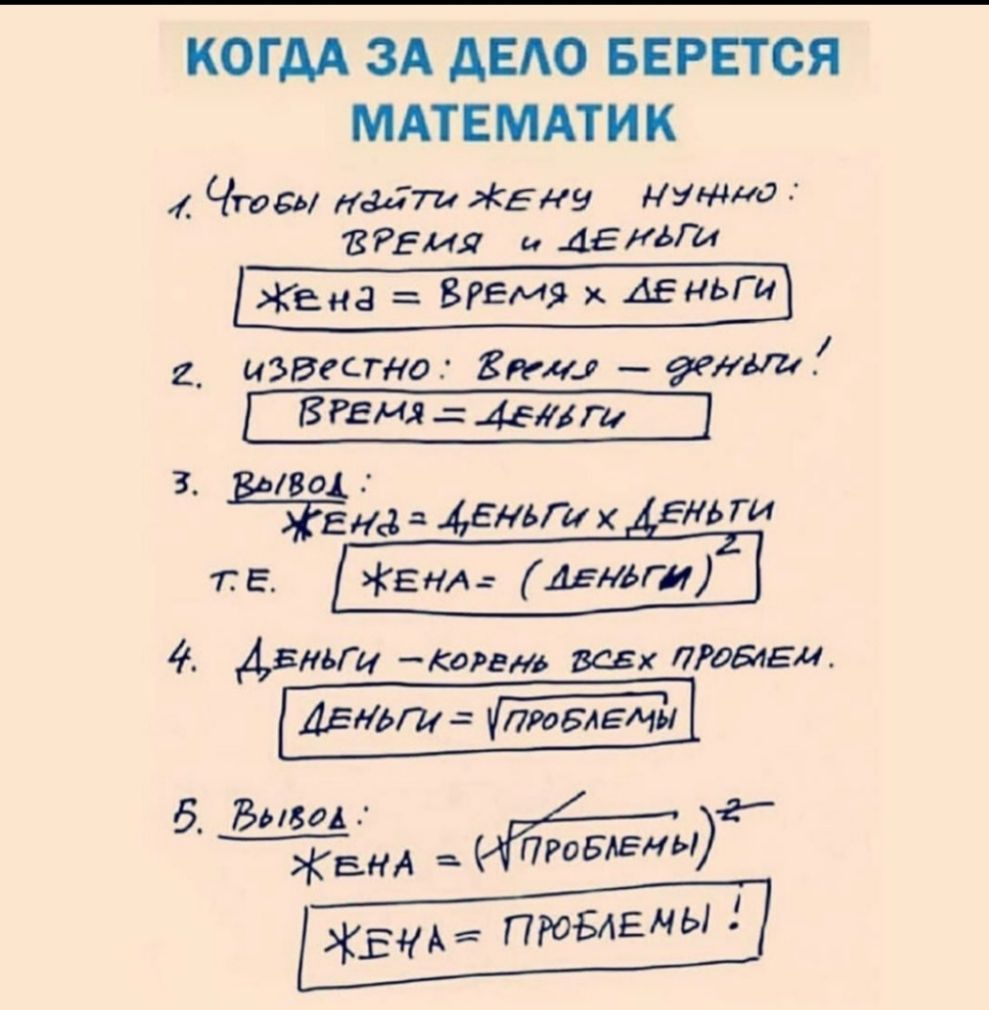 КОГДА ЗА ДЕЛО БЕРЕТСЯ
МАТЕМАТИК
1. Чтобы найти жену нужно:
ВРЕМЯ и ДЕНЬГИ
Жена = ВРЕМЯ х ДЕНЬГИ
2. известно: Время – деньги!
ВРЕМЯ = ДЕНЬГИ
3. Вывод:
ЖЕНА = ДЕНЬГИ х ДЕНЬГИ
Т.Е. ЖЕНА = (ДЕНЬГИ)²
4. ДЕНЬГИ – КОРЕНЬ ВСЕХ ПРОБЛЕМ.
ДЕНЬГИ = √ПРОБЛЕМЫ
5. Вывод:
ЖЕНА = (√ПРОБЛЕМЫ)²
ЖЕНА = ПРОБЛЕМЫ!